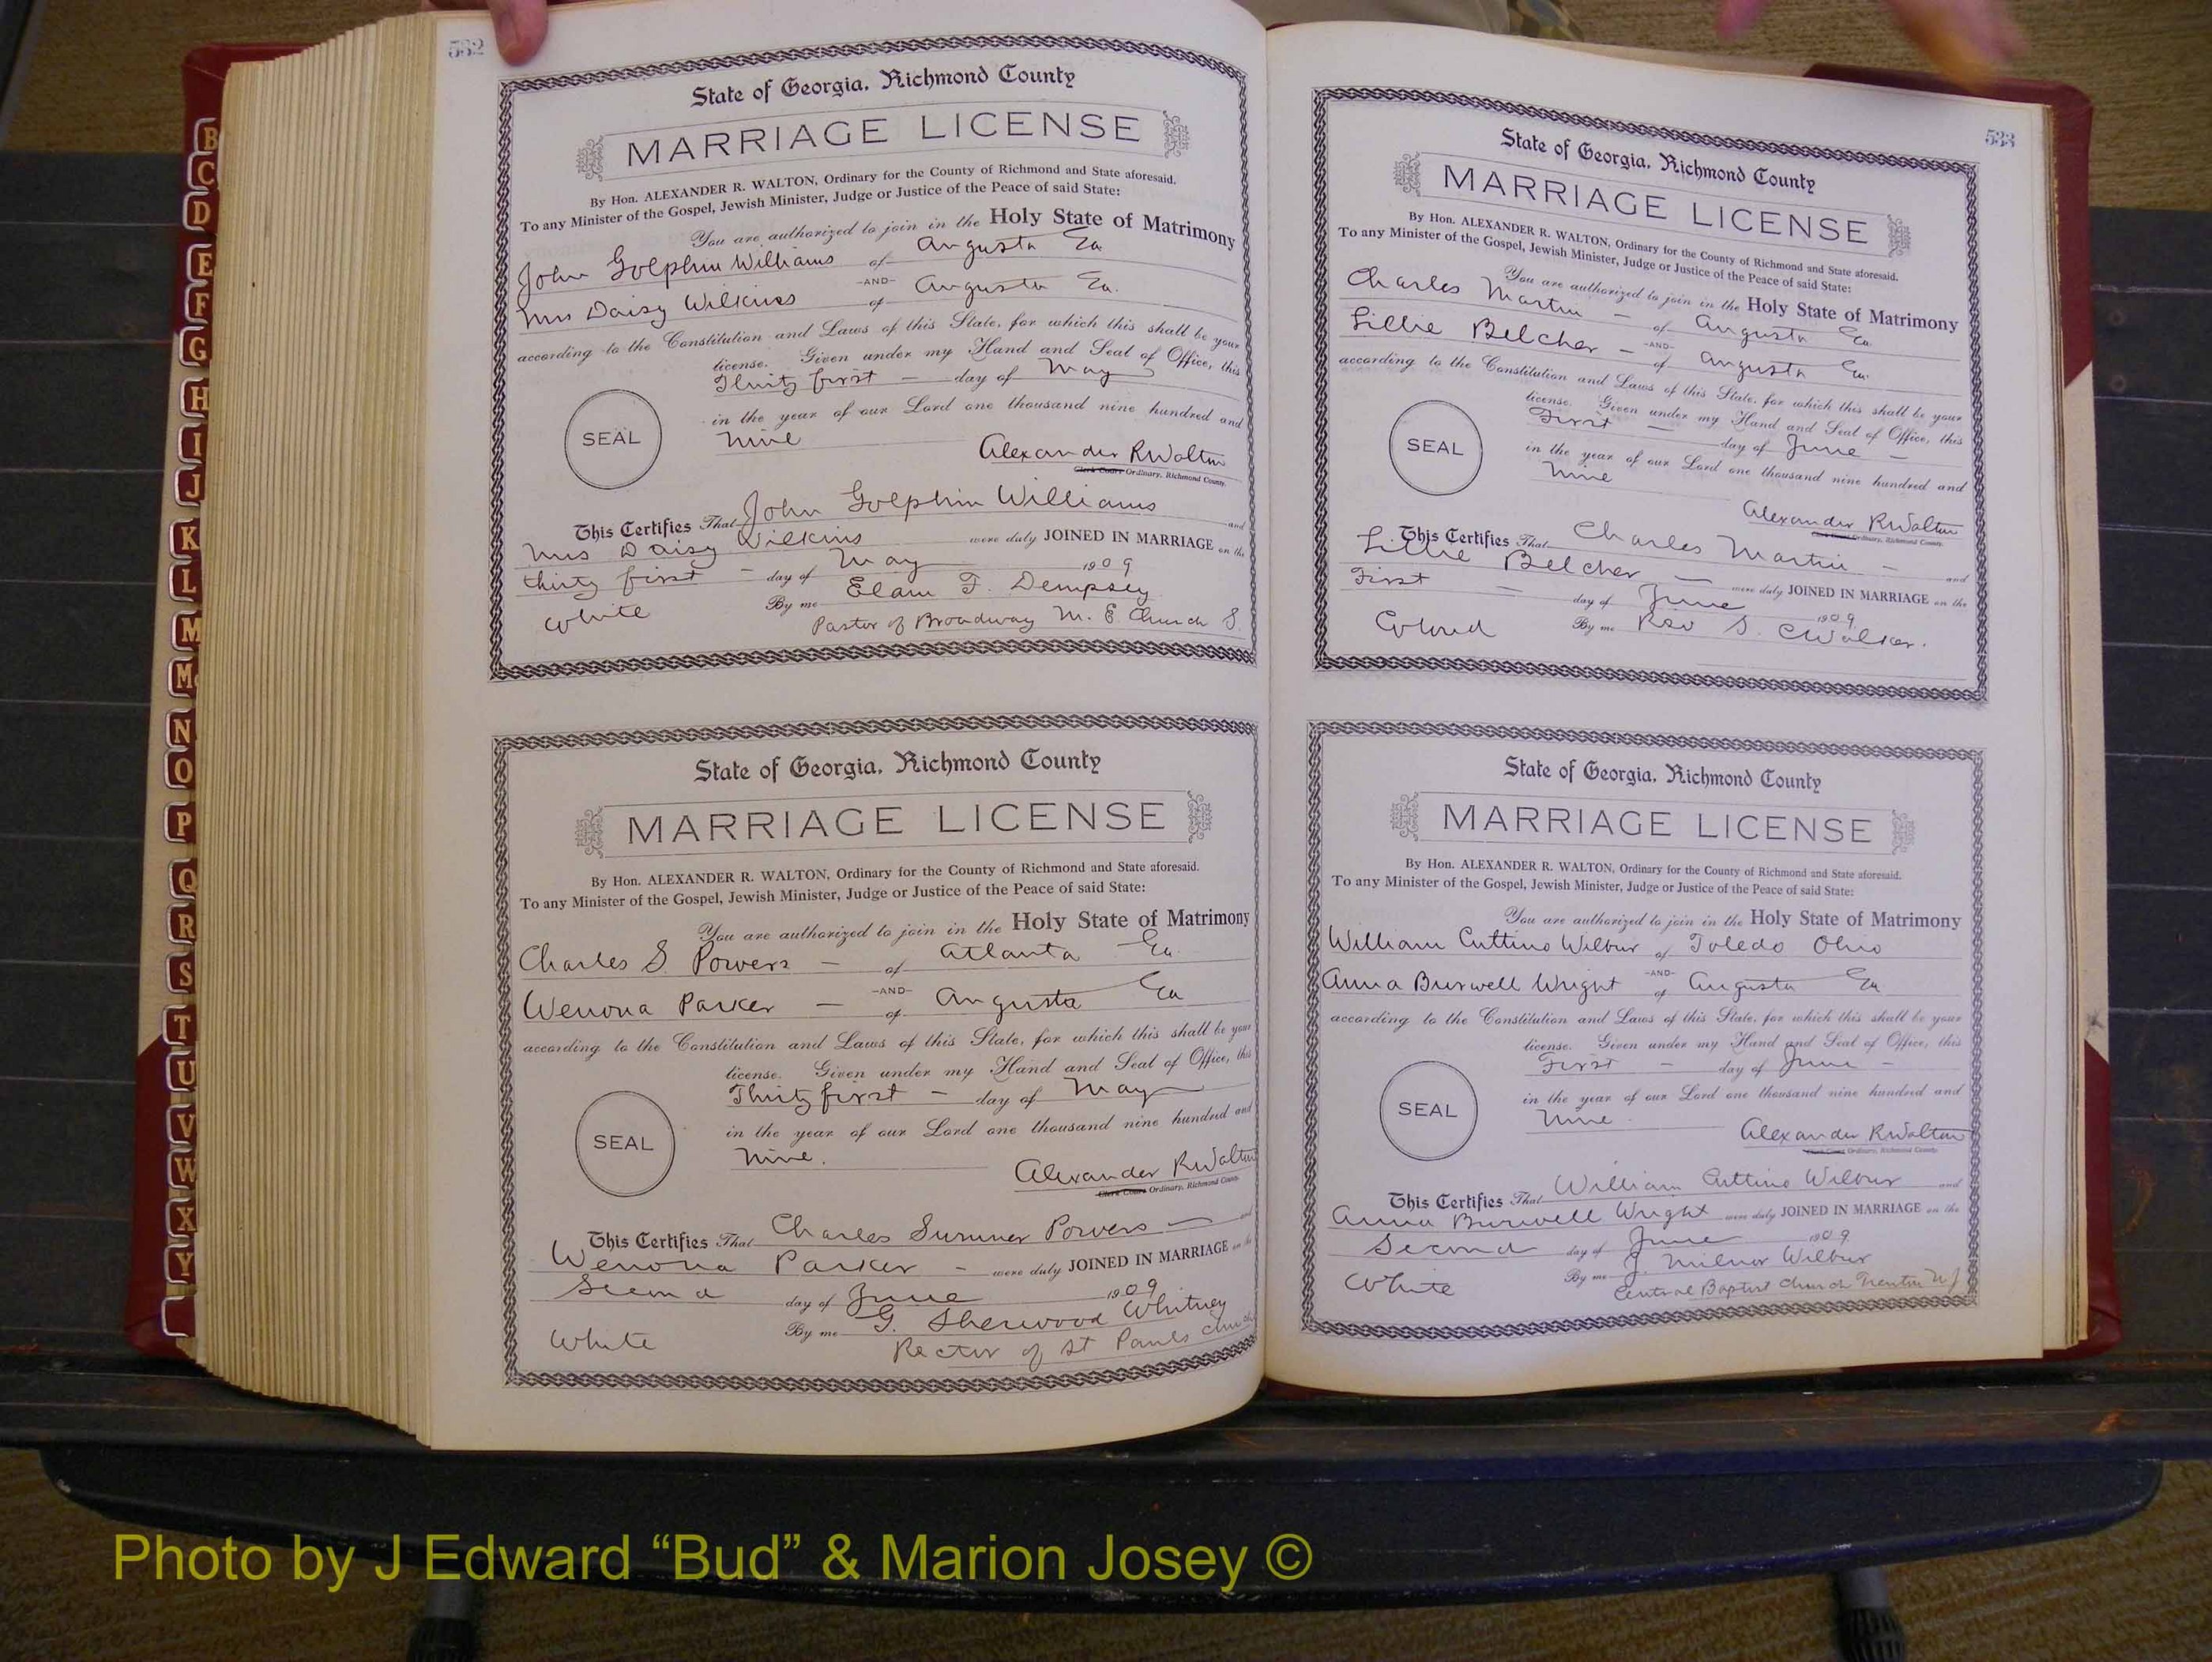 532
State of Georgia, Richmond County
MARRIAGE LICENSE
By Hon. ALEXANDER R. WALTON, Ordinary for the County of Richmond and State aforesaid.
To any Minister of the Gospel, Jewish Minister, Judge or Justice of the Peace of said State:
You are authorized to join in the Holy State of Matrimony
John Golphin Williams of Augusta Ga
-AND-
Mrs Daisy Wilkins of Augusta Ga.
according to the Constitution and Laws of this State, for which this shall be your
license. Given under my Hand and Seal of Office, this
Thirty first day of May
in the year of our Lord one thousand nine hundred and
SEAL
nine
Alexander R Walton
Clerk Court Ordinary, Richmond County.
This Certifies That John Golphin Williams and
Mrs Daisy Wilkins were duly JOINED IN MARRIAGE on the
thirty first - day of May 1909
White By me Elam F. Dempsey
Pastor of Broadway M. E Church S.
State of Georgia, Richmond County
MARRIAGE LICENSE
By Hon. ALEXANDER R. WALTON, Ordinary for the County of Richmond and State aforesaid.
To any Minister of the Gospel, Jewish Minister, Judge or Justice of the Peace of said State:
You are authorized to join in the Holy State of Matrimony
Charles S. Powers - of Atlanta Ga.
-AND-
Wenona Parker - of Augusta Ga
according to the Constitution and Laws of this State, for which this shall be your
license. Given under my Hand and Seal of Office, this
Thirty first - day of May
in the year of our Lord one thousand nine hundred and
SEAL
nine.
Alexander R Walton
Clerk Court Ordinary, Richmond County.
This Certifies That Charles Sumner Powers - and
Wenona Parker - were duly JOINED IN MARRIAGE on the
Second day of June 1909
White By me G. Sherwood Whitney
Rector of St Pauls church
533
State of Georgia, Richmond County
MARRIAGE LICENSE
By Hon. ALEXANDER R. WALTON, Ordinary for the County of Richmond and State aforesaid.
To any Minister of the Gospel, Jewish Minister, Judge or Justice of the Peace of said State:
You are authorized to join in the Holy State of Matrimony
Charles Martin - of Augusta Ga
-AND-
Lillie Belcher - of Augusta Ga.
according to the Constitution and Laws of this State, for which this shall be your
license. Given under my Hand and Seal of Office, this
First - day of June -
in the year of our Lord one thousand nine hundred and
SEAL
nine
Alexander R Walton
Clerk Court Ordinary, Richmond County.
This Certifies That Charles Martin - and
Lillie Belcher - were duly JOINED IN MARRIAGE on the
First - day of June 1909
Colored By me Rev S. C Walker.
State of Georgia, Richmond County
MARRIAGE LICENSE
By Hon. ALEXANDER R. WALTON, Ordinary for the County of Richmond and State aforesaid.
To any Minister of the Gospel, Jewish Minister, Judge or Justice of the Peace of said State:
You are authorized to join in the Holy State of Matrimony
William Cuttino Wilbur of Toledo Ohio
-AND-
Anna Burwell Wright of Augusta Ga
according to the Constitution and Laws of this State, for which this shall be your
license. Given under my Hand and Seal of Office, this
First - day of June -
in the year of our Lord one thousand nine hundred and
SEAL
nine.
Alexander R Walton
Clerk Court Ordinary, Richmond County.
This Certifies That William Cuttino Wilbur and
Anna Burwell Wright were duly JOINED IN MARRIAGE on the
Second day of June 1909
White By me J. Milnor Wilbur
Central Baptist Church Trenton N J
B
C
D
E
F
G
H
I
J
K
L
M
Mc
N
O
P
Q
R
S
T
U
V
W
X
Y
Photo by J Edward “Bud” & Marion Josey ©